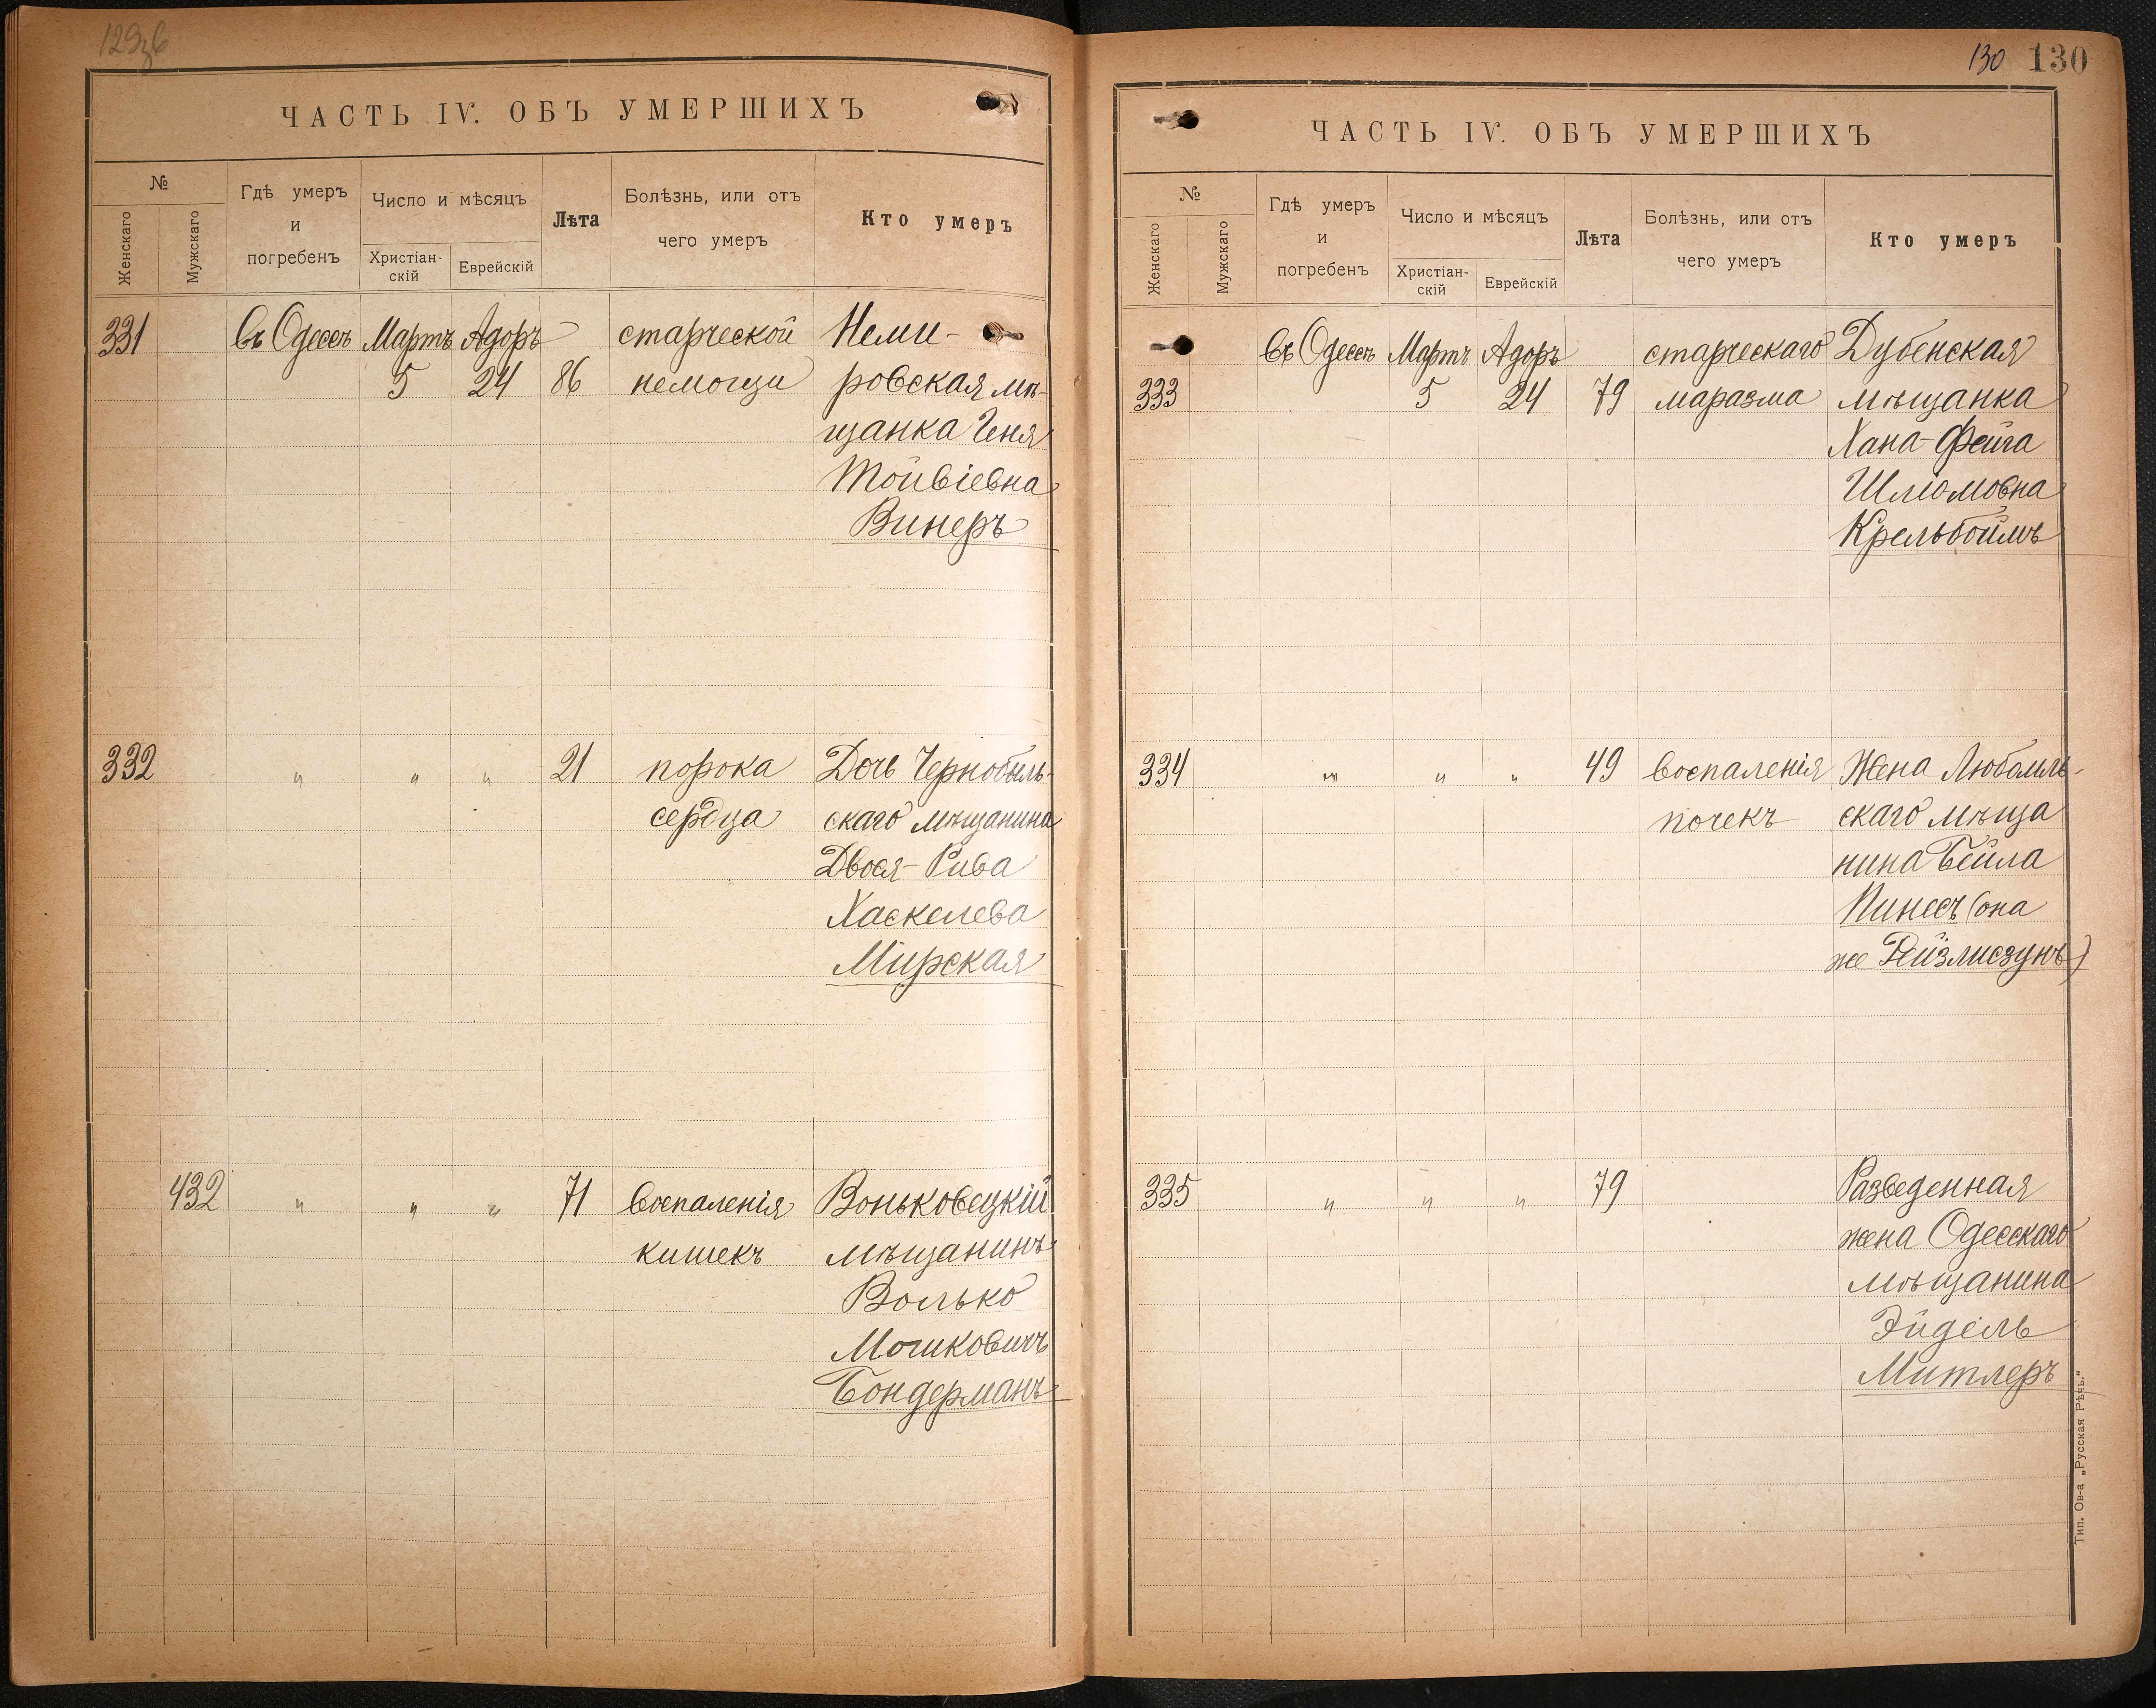 129об
ЧАСТЬ IV. ОБЪ УМЕРШИХЪ
№
Женскаго
Мужскаго
Гдѣ умеръ
и
погребенъ
Число и мѣсяцъ
Христіан-
скій
Еврейскій
Лѣта
Болѣзнь, или отъ
чего умеръ
Кто умеръ
331 въ Одессѣ Мартъ Адоръ старческой Неми-
5 24 86 немощи ровская мѣ-
щанка Геня
Тойвіевна
Винеръ
332 " " " 21 порока Дочь Чернобыль-
сердца скаго мѣщанина
Двося-Рива
Хаскелева
Мирская
432 " " " 71 воспаленія Воньковецкій
кишекъ мѣщанинъ
Волько
Мошковичъ
Бондерманъ
130 130
ЧАСТЬ IV. ОБЪ УМЕРШИХЪ
№
Женскаго
Мужскаго
Гдѣ умеръ
и
погребенъ
Число и мѣсяцъ
Христіан-
скій
Еврейскій
Лѣта
Болѣзнь, или отъ
чего умеръ
Кто умеръ
въ Одессѣ Мартъ Адоръ старческаго Дубенская
333 5 24 79 маразма мѣщанка
Хана-Фейга
Шліомовна
Крельбоймъ
334 " " " 49 воспаленія Жена Любомль-
почекъ скаго мѣща
нина Бейла
Пинесъ (она
же
335 " " " 79 Разведенная
жена Одесскаго
мѣщанина
Эйдель
Митлеръ
Тип. Ов-а „Русская Рѣчь."